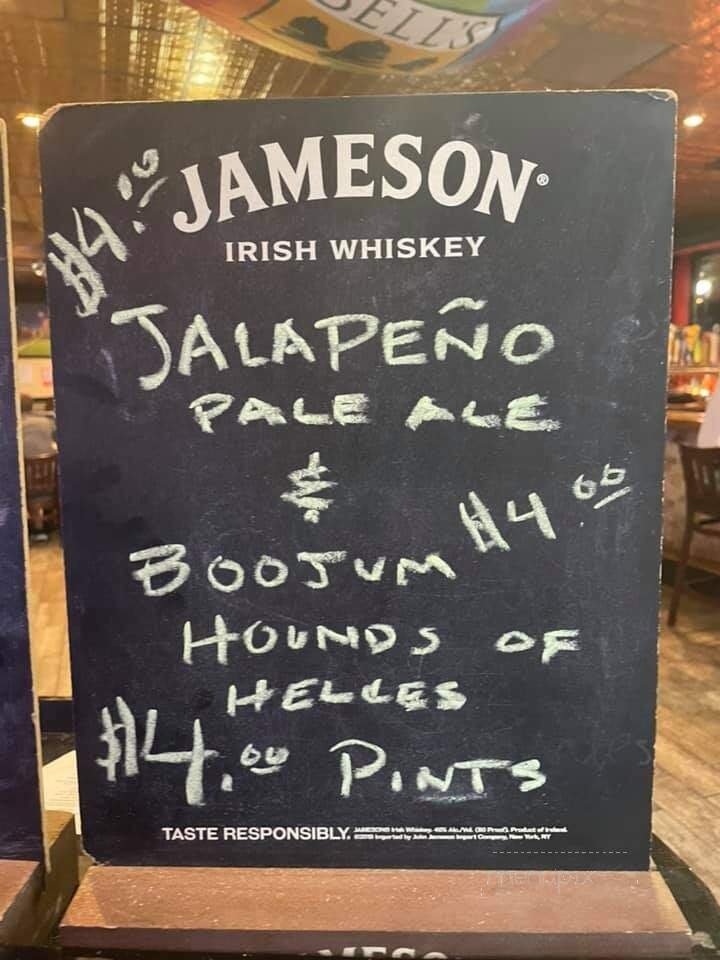 BELL'S
$4.00
JAMESON®
IRISH WHISKEY
JALAPEÑO
PALE ALE
&
$4.00
BOOJUM
HOUNDS OF
HELLES
$4.00 PINTS
TASTE RESPONSIBLY.
JAMESON® Irish Whiskey. 40% Alc./Vol. (80 Proof). Product of Ireland.
Imported by John Jameson Import Company, New York, NY